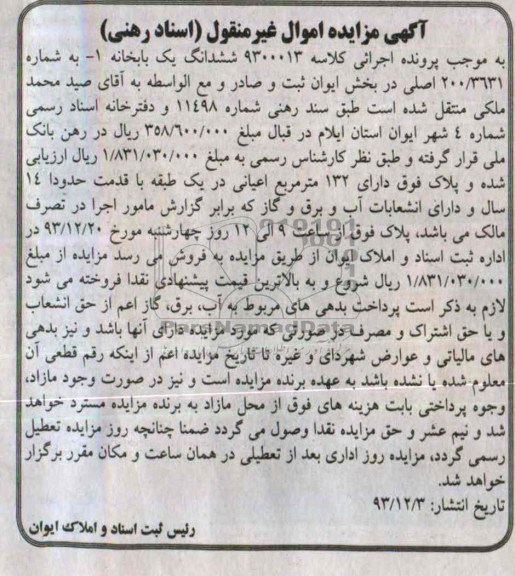 آگهی مزایده اموال غیرمنقول (اسناد رهنی)
به موجب پرونده اجرائی کلاسه ۹۳۰۰۰۱۳ ششدانگ یک بابخانه ۱- به شماره
۲۰۰/۳۶۳۱ اصلی در بخش ایوان ثبت و صادر و مع الواسطه به آقای صید محمد
ملکی منتقل شده است طبق سند رهنی شماره ۱۱۴۹۸ و دفترخانه اسناد رسمی
شماره ٤ شهر ایوان استان ایلام در قبال مبلغ ۳۵۸/۶۰۰/۰۰۰ ریال در رهن بانک
ملی قرار گرفته و طبق نظر کارشناس رسمی به مبلغ ۱/۸۳۱/۰۳۰/۰۰۰ ریال ارزیابی
شده و پلاک فوق دارای ۱۳۲ مترمربع اعیانی در یک طبقه با قدمت حدودا ۱۴
سال و دارای انشعابات آب و برق و گاز که برابر گزارش مامور اجرا در تصرف
مالک می باشد، پلاک فوق از ساعت ۹ الی ۱۲ روز چهارشنبه مورخ ۹۳/۱۲/۲۰ در
اداره ثبت اسناد و املاک ایوان از طریق مزایده به فروش می رسد مزایده از مبلغ
۱/۸۳۱/۰۳۰/۰۰۰ ریال شروع و به بالاترین قیمت پیشنهادی نقدا فروخته می شود
لازم به ذکر است پرداخت بدهی های مربوط به آب، برق، گاز اعم از حق انشعاب
و یا حق اشتراک و مصرف در صورتی که مورد مزایده دارای آنها باشد و نیز بدهی
های مالیاتی و عوارض شهردای و غیره تا تاریخ مزایده اعم از اینکه رقم قطعی آن
معلوم شده یا نشده باشد به عهده برنده مزایده است و نیز در صورت وجود مازاد،
وجوه پرداختی بابت هزینه های فوق از محل مازاد به برنده مزایده مسترد خواهد
شد و نیم عشر و حق مزایده نقدا وصول می گردد ضمنا چنانچه روز مزایده تعطیل
رسمی گردد، مزایده روز اداری بعد از تعطیلی در همان ساعت و مکان مقرر برگزار
خواهد شد.
تاریخ انتشار: ۹۳/۱۲/۳
رئیس ثبت اسناد و املاک ایوان